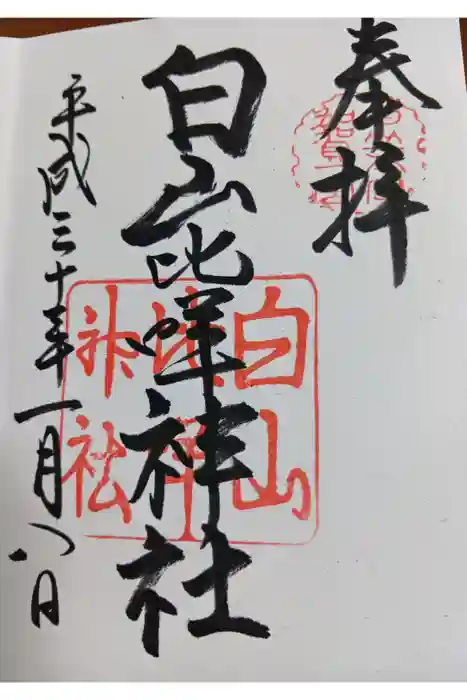 奉拝
白山比咩神社
平成三十年一月八日
白山
比咩
神社